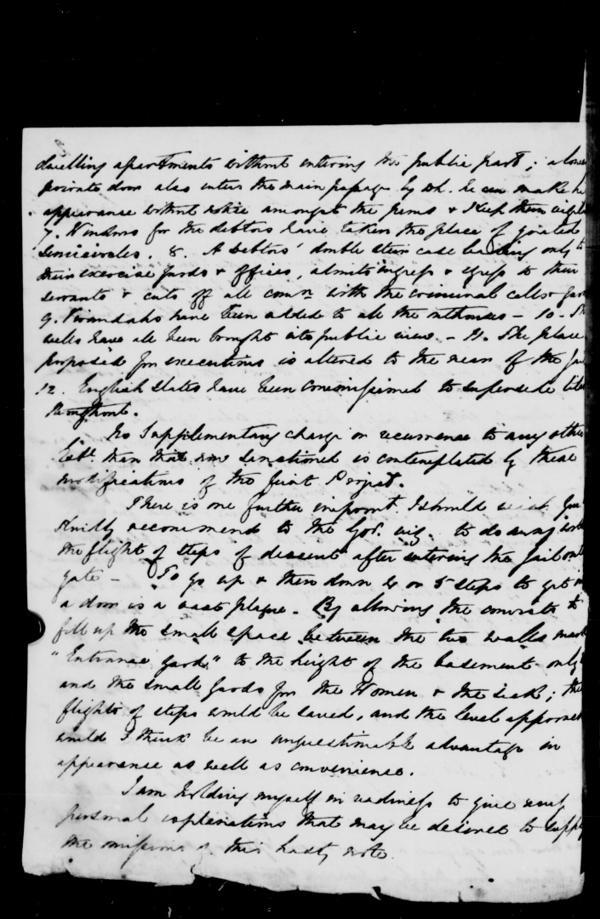 dwelling apartments without entering the public part; a
private door also enters the main passage by wh. he can make h
appearance without notice amongst the & keep them
7. Windows for the debtors have taken the place of grated
Semicircles. 8. A Debtors' double stair case leading only to
their exercise yards & offices, admits ingress & egress to their
servants & cuts off all comn with the criminal cells &
9. Verandahs have been added to all the outhouses - 10. The
wells have all been brought into public view. - 11. The place
proposed for executions is altered to the rear of the
12. English Slates have been commissioned to supersede tile
throughout.
No Supplementary charge or recurrence to any other
than that now sanctioned is contemplated by these
modifications of the first Project.
There is one further improvt. I should wish
to recommend to the Govt. viz. to do away with
the flight of steps of descent after entering the Jail
gate - To go up & then down 4 or 5 steps to get in
a door is a vast plague. By allowing the convicts to
fill up the small space between the two walls
"Entrance yard" to the height of the basement only
and the small yards for the Women & the sick; the
flights of steps would be saved, and the level
would I think be an unquestionable advantage in
appearance as well as convenience.
I am holding myself in readiness to give any
personal explanations that may be desired to supply
the omissions of this hasty note.